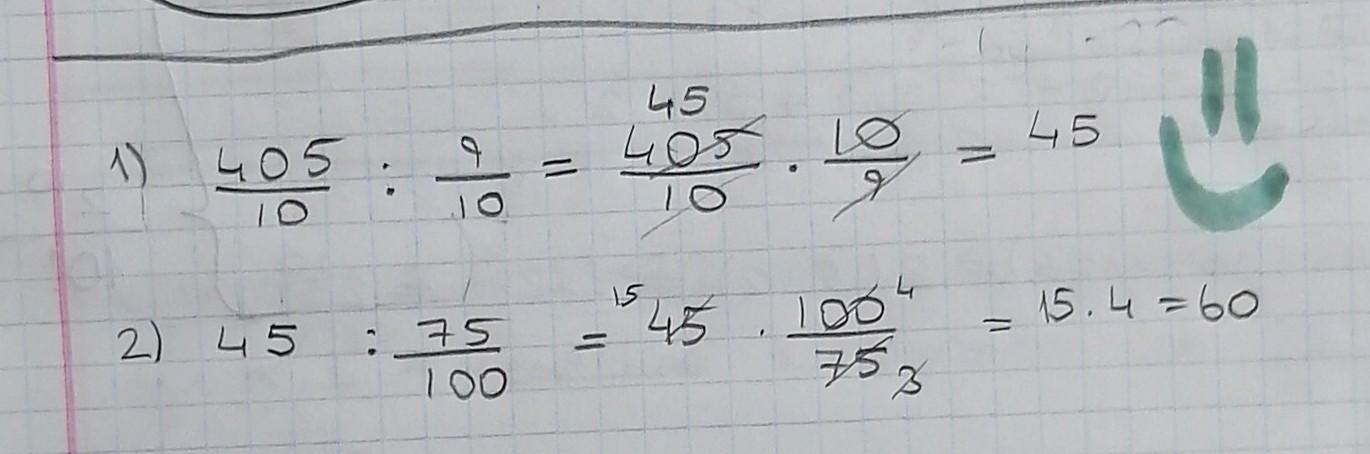 1) 405/10 : 9/10 = 45 405/10 · 10/9 = 45
2) 45 : 75/100 = 15 45 · 100 4/75 3 = 15 . 4 = 60